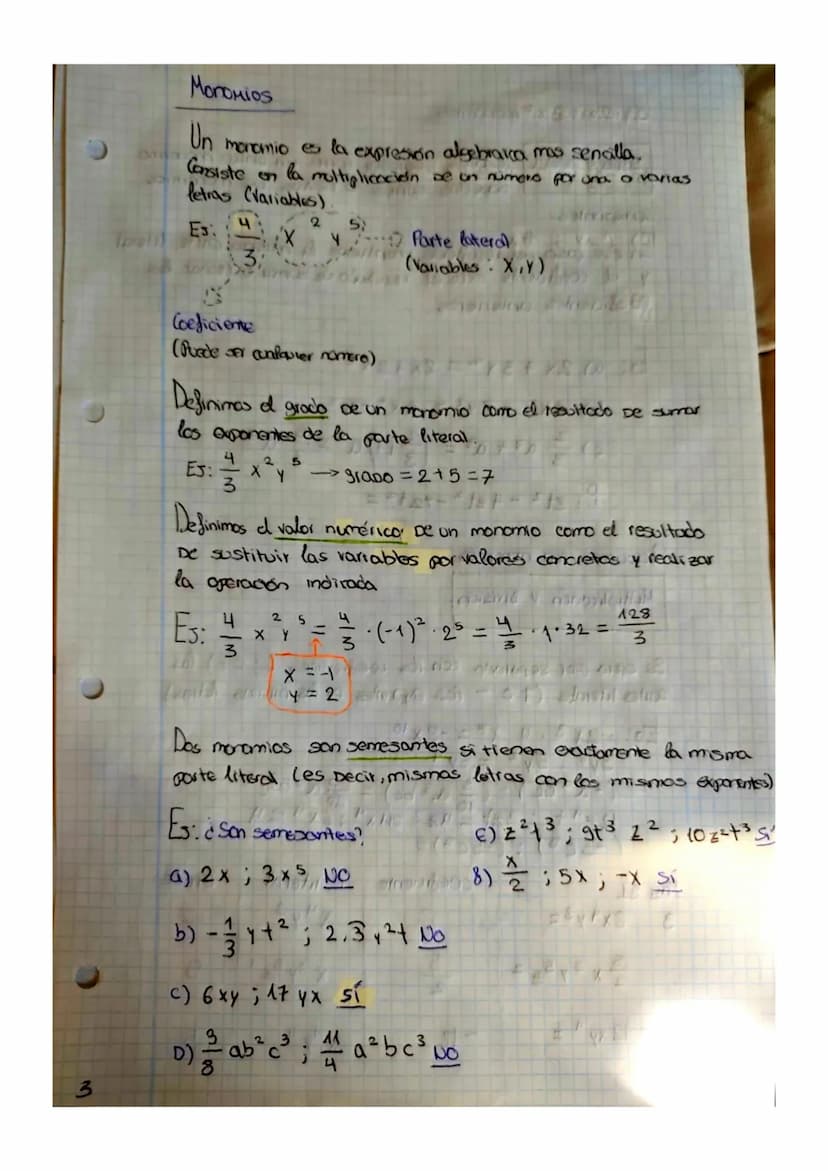 Monomios
Un monomio es la expresión algebraica mas sencilla.
Consiste en la multiplicación de un numero por una o varias
letras (Variables)
Ej: 4/3 x² y⁵ Parte lateral
(Variables : X,Y)
Coeficiente
(Puede ser cualquier número)
Definimos el grado de un monomio como el resultado de sumar
los exponentes de la parte literal.
Ej: 4/3 x² y⁵ → grado = 2+5 = 7
Definimos el valor numérico de un monomio como el resultado
de sustituir las variables por valores concretos y realizar
la operación indicada
Ej: 4/3 x² y⁵ = 4/3 · (-1)² · 2⁵ = 4/3 · 1 · 32 = 128/3
x = -1
y = 2
Dos monomios son semejantes si tienen exactamente la misma
parte literal (es decir, mismas letras con los mismos exponentes)
Ej: ¿Son semejantes?
a) 2x ; 3x⁵ NO
b) -1/3 yt² ; 2.3 y²t No
c) 6xy ; 17 yx sí
D) 9/8 ab²c³ ; 11/4 a²bc³ NO
E) z²t³ ; 9t³ z² ; 10z²t³ Sí
8) x/2 ; 5x ; -x Sí
3